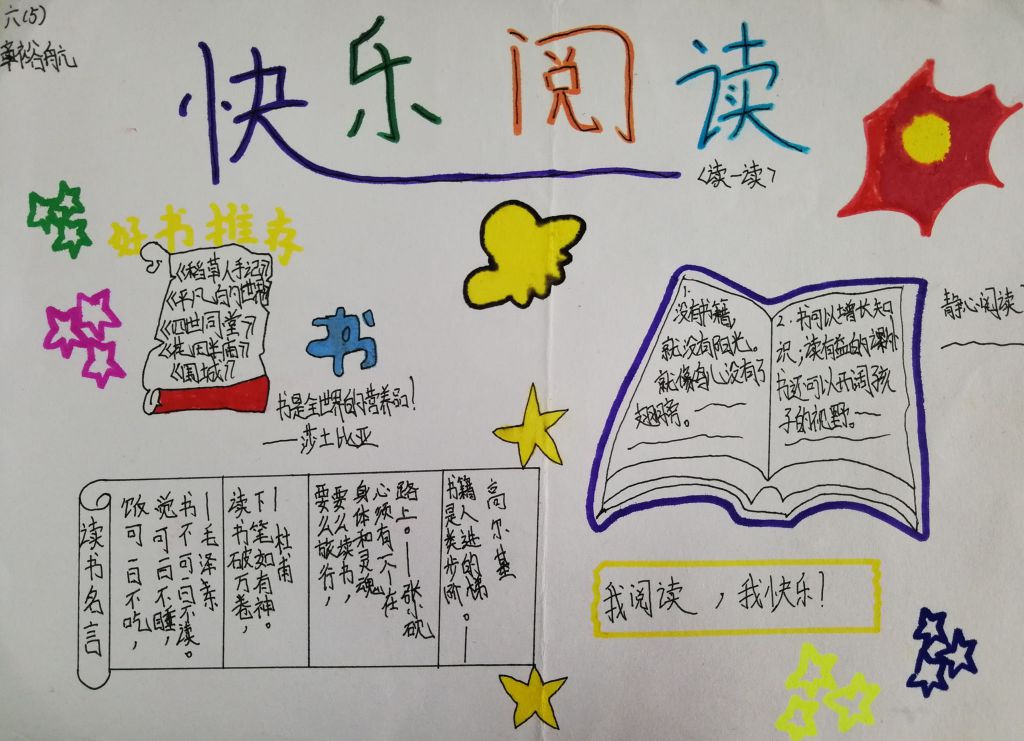 六(5)
裕航
快乐阅读
〈读一读〉
好书推荐
《稻草人手记》
《平凡的世界》
《四世同堂》
《围城》
书
书是全世界的营养品!
——莎士比亚
1.没有书籍,
就没有阳光。
就像鸟儿没有了
翅膀。
2.书可以增长知
识;读有益的课外
书还可以开阔孩
子的视野。
静心阅读
读书名言
饭可一日不吃,
觉可一日不睡,
书不可一日不读。
—毛泽东
读书破万卷,
下笔如有神。
—杜甫
要么旅行,
要么读书,
身体和灵魂
必须有一个在
路上。——张小砚
书籍是人类进步的阶梯。——
高尔基
我阅读,我快乐!